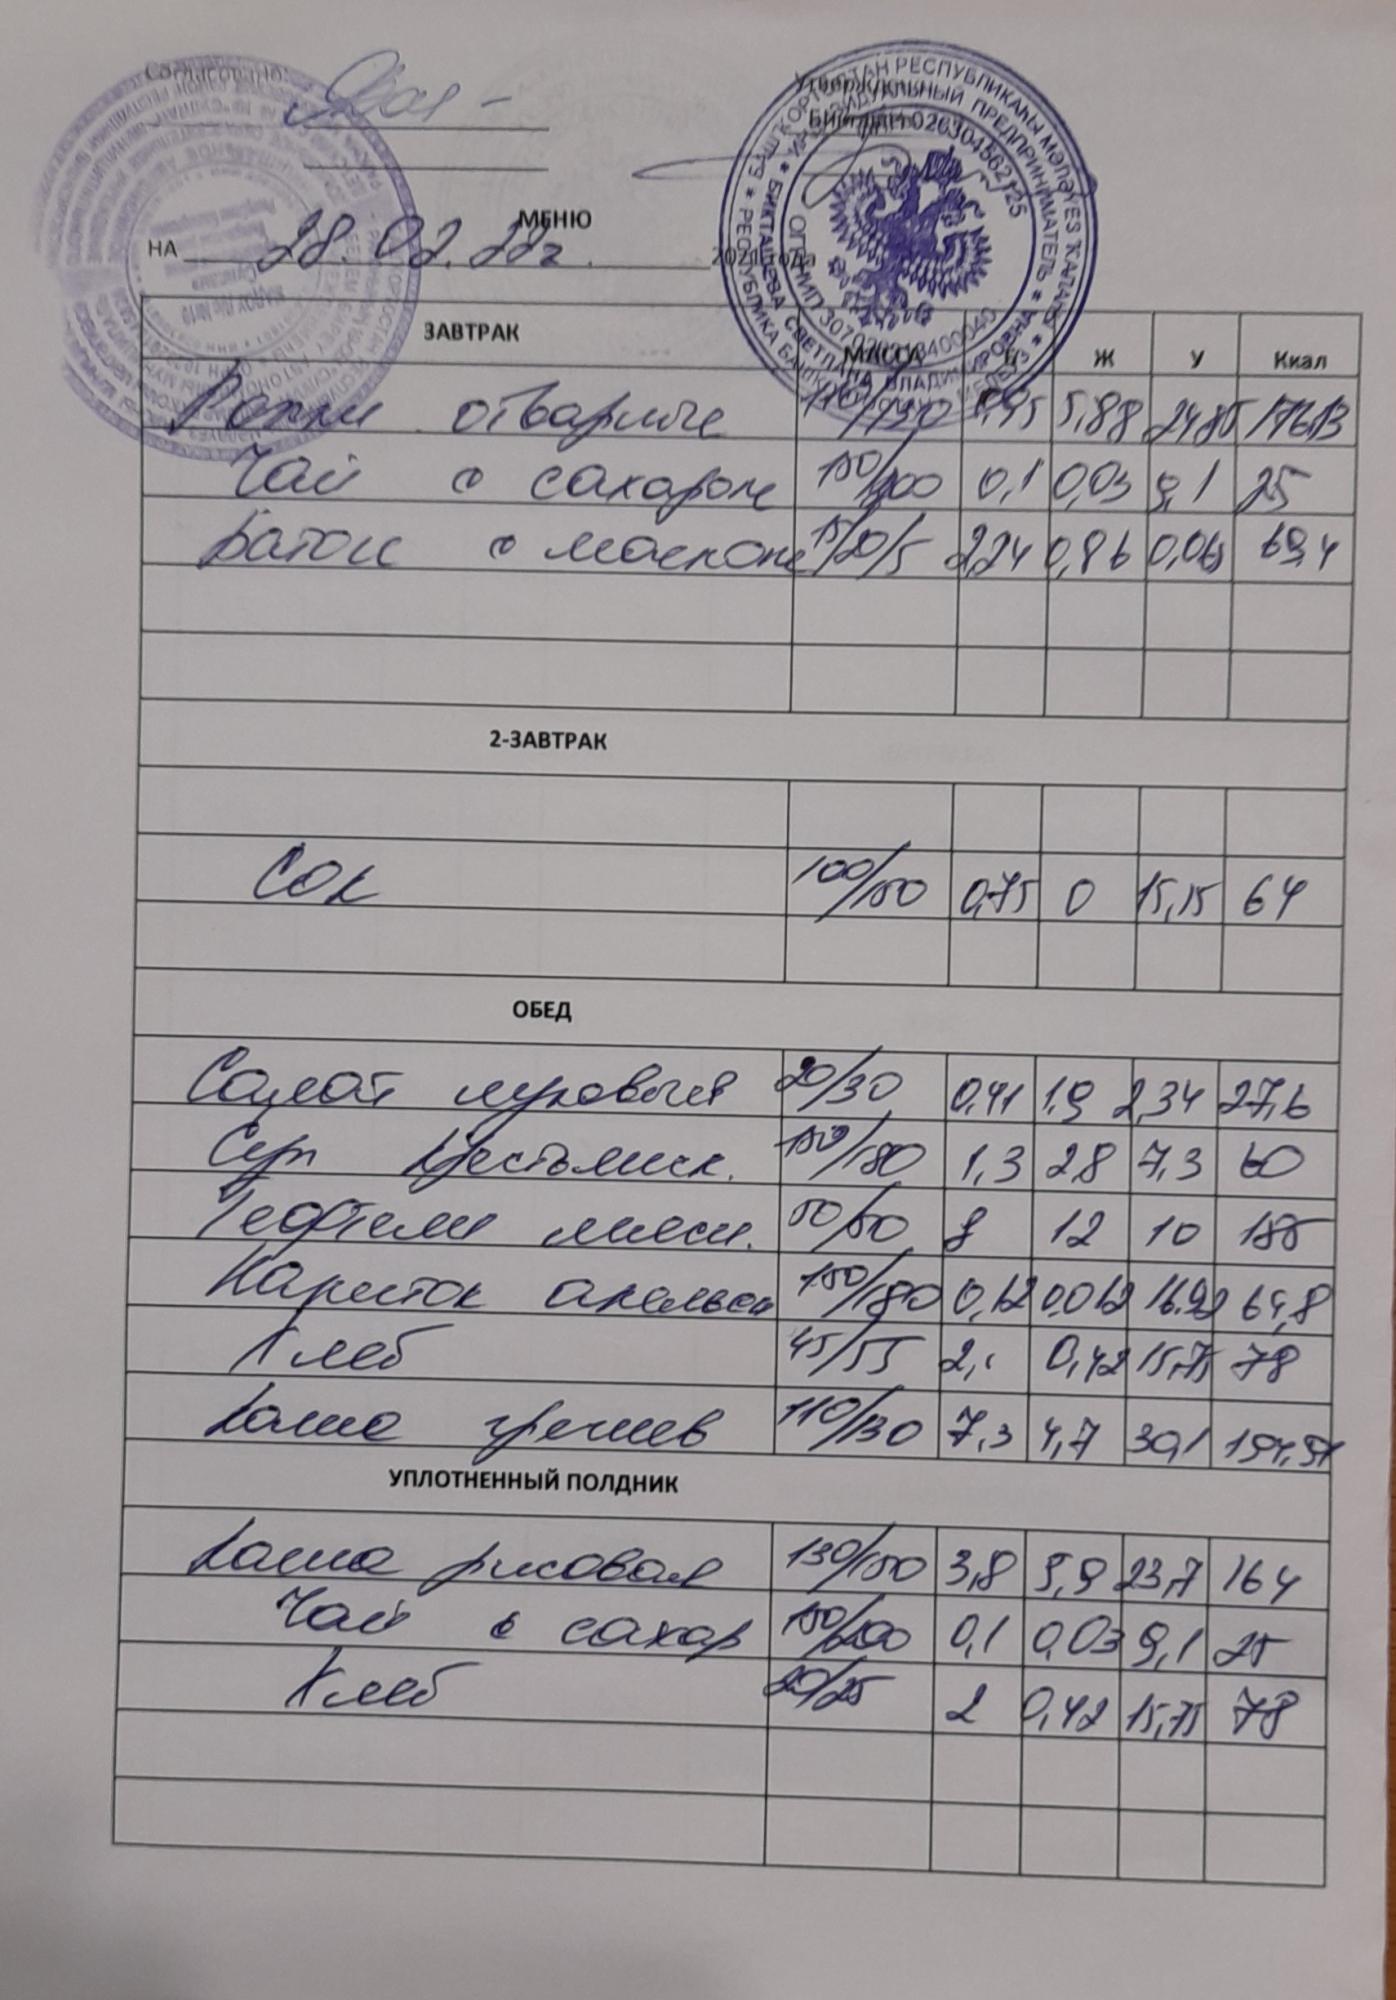 Согласовано:
Утверждено
МЕНЮ
НА 28.02.22г. 2021 года
ЗАВТРАК МАССА Б Ж У Ккал
отварные 110/130 5,88 24,85
Чай с сахаром 150/200 0,1 0,03 9,1 25
Батон с маслом 15/20/5 2,24 0,86 0,06 69,4
2-ЗАВТРАК
Сок 100/150 0,75 0 15,15 64
ОБЕД
Салат луковый 20/30 0,41 1,9 2,34 27,6
Суп крестьянск. 150/180 1,3 2,8 7,3 60
Тефтели мясн. 50/50 8 12 10 185
Напиток апельсин 150/180 0,12 0,012 16.92 64,8
Хлеб 45/55 2, 0,42 15,75 78
Каша гречнев 110/130 7,3 4,7 30,1 194,51
УПЛОТНЕННЫЙ ПОЛДНИК
Каша рисовая 130/150 3,8 5,9 23,7 164
Чай с сахар 150/200 0,1 0,03 9,1 25
Хлеб 20/25 2 0,42 15,75 78